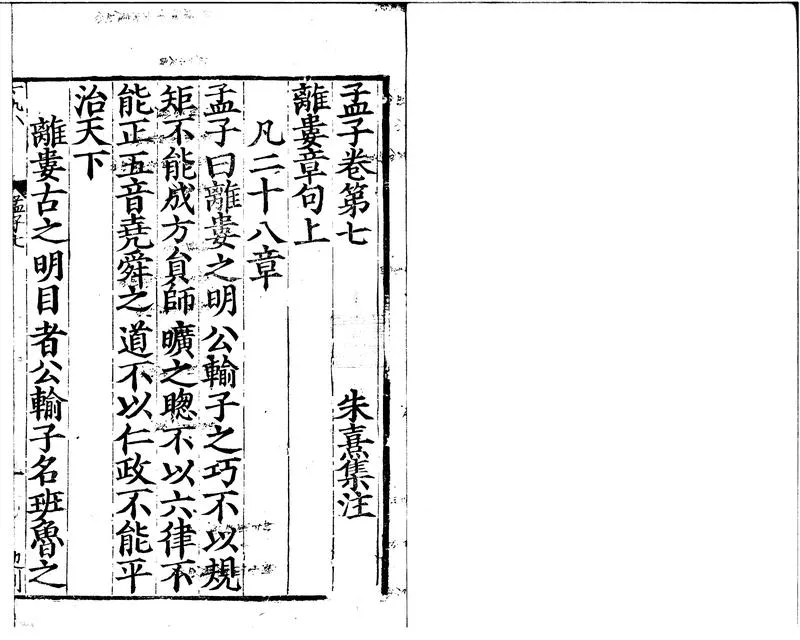 孟子卷第七
朱熹集注
離婁章句上
凡二十八章
孟子曰離婁之明公輸子之巧不以規
矩不能成方貟師曠之聦不以六律不
能正五音堯舜之道不以仁政不能平
治天下
離婁古之明目者公輸子名班魯之